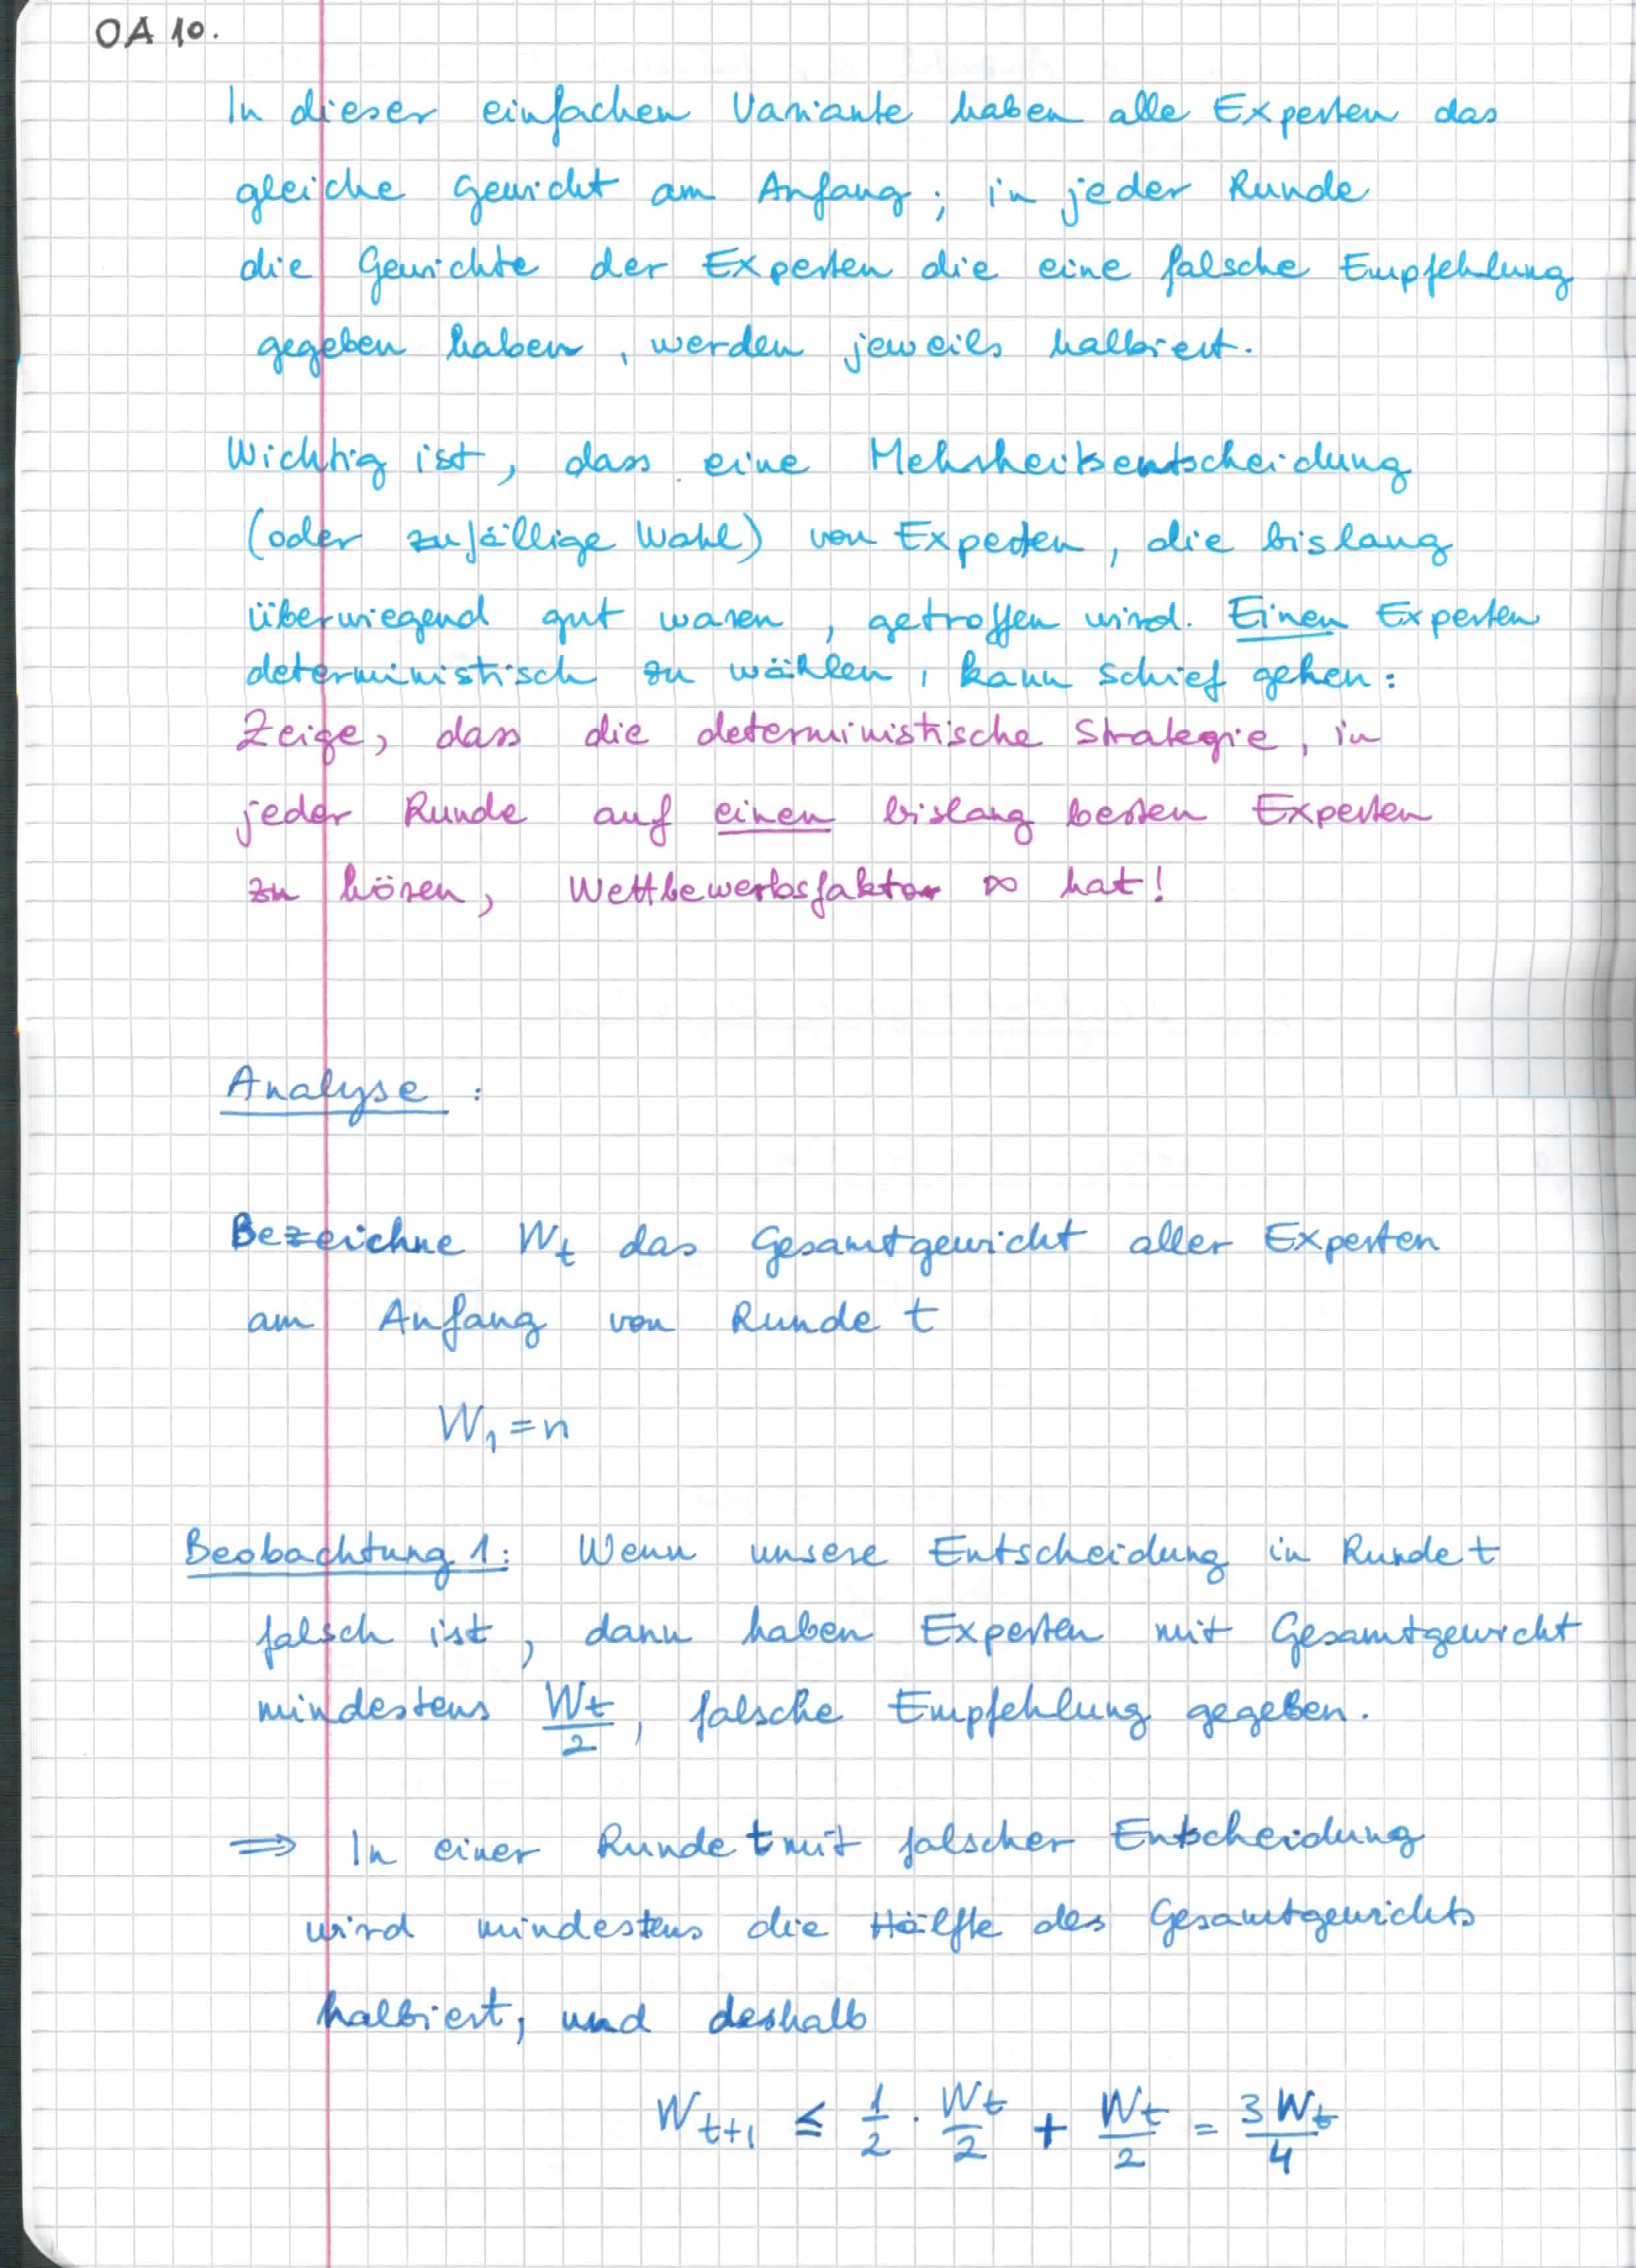 OA 10.
In dieser einfachen Variante haben alle Experten das
gleiche Gewicht am Anfang; in jeder Runde
die Gewichte der Experten die eine falsche Empfehlung
gegeben haben, werden jeweils halbiert.
Wichtig ist, dass eine Mehrheitsentscheidung
(oder zufällige Wahl) von Experten, die bislang
überwiegend gut waren, getroffen wird. Einen Experten
deterministisch zu wählen, kann schief gehen:
Zeige, dass die deterministische Strategie, in
jeder Runde auf einen bislang besten Experten
zu hören, Wettbewerbsfaktor ∞ hat!
Analyse:
Bezeichne W_t das Gesamtgewicht aller Experten
am Anfang von Runde t
W_1 = n
Beobachtung 1: Wenn unsere Entscheidung in Runde t
falsch ist, dann haben Experten mit Gesamtgewicht
mindestens W_t/2, falsche Empfehlung gegeben.
⇒ In einer Runde t mit falscher Entscheidung
wird mindestens die Hälfte des Gesamtgewichts
halbiert, und deshalb
W_{t+1} ≤ 1/2 · W_t/2 + W_t/2 = 3W_t/4